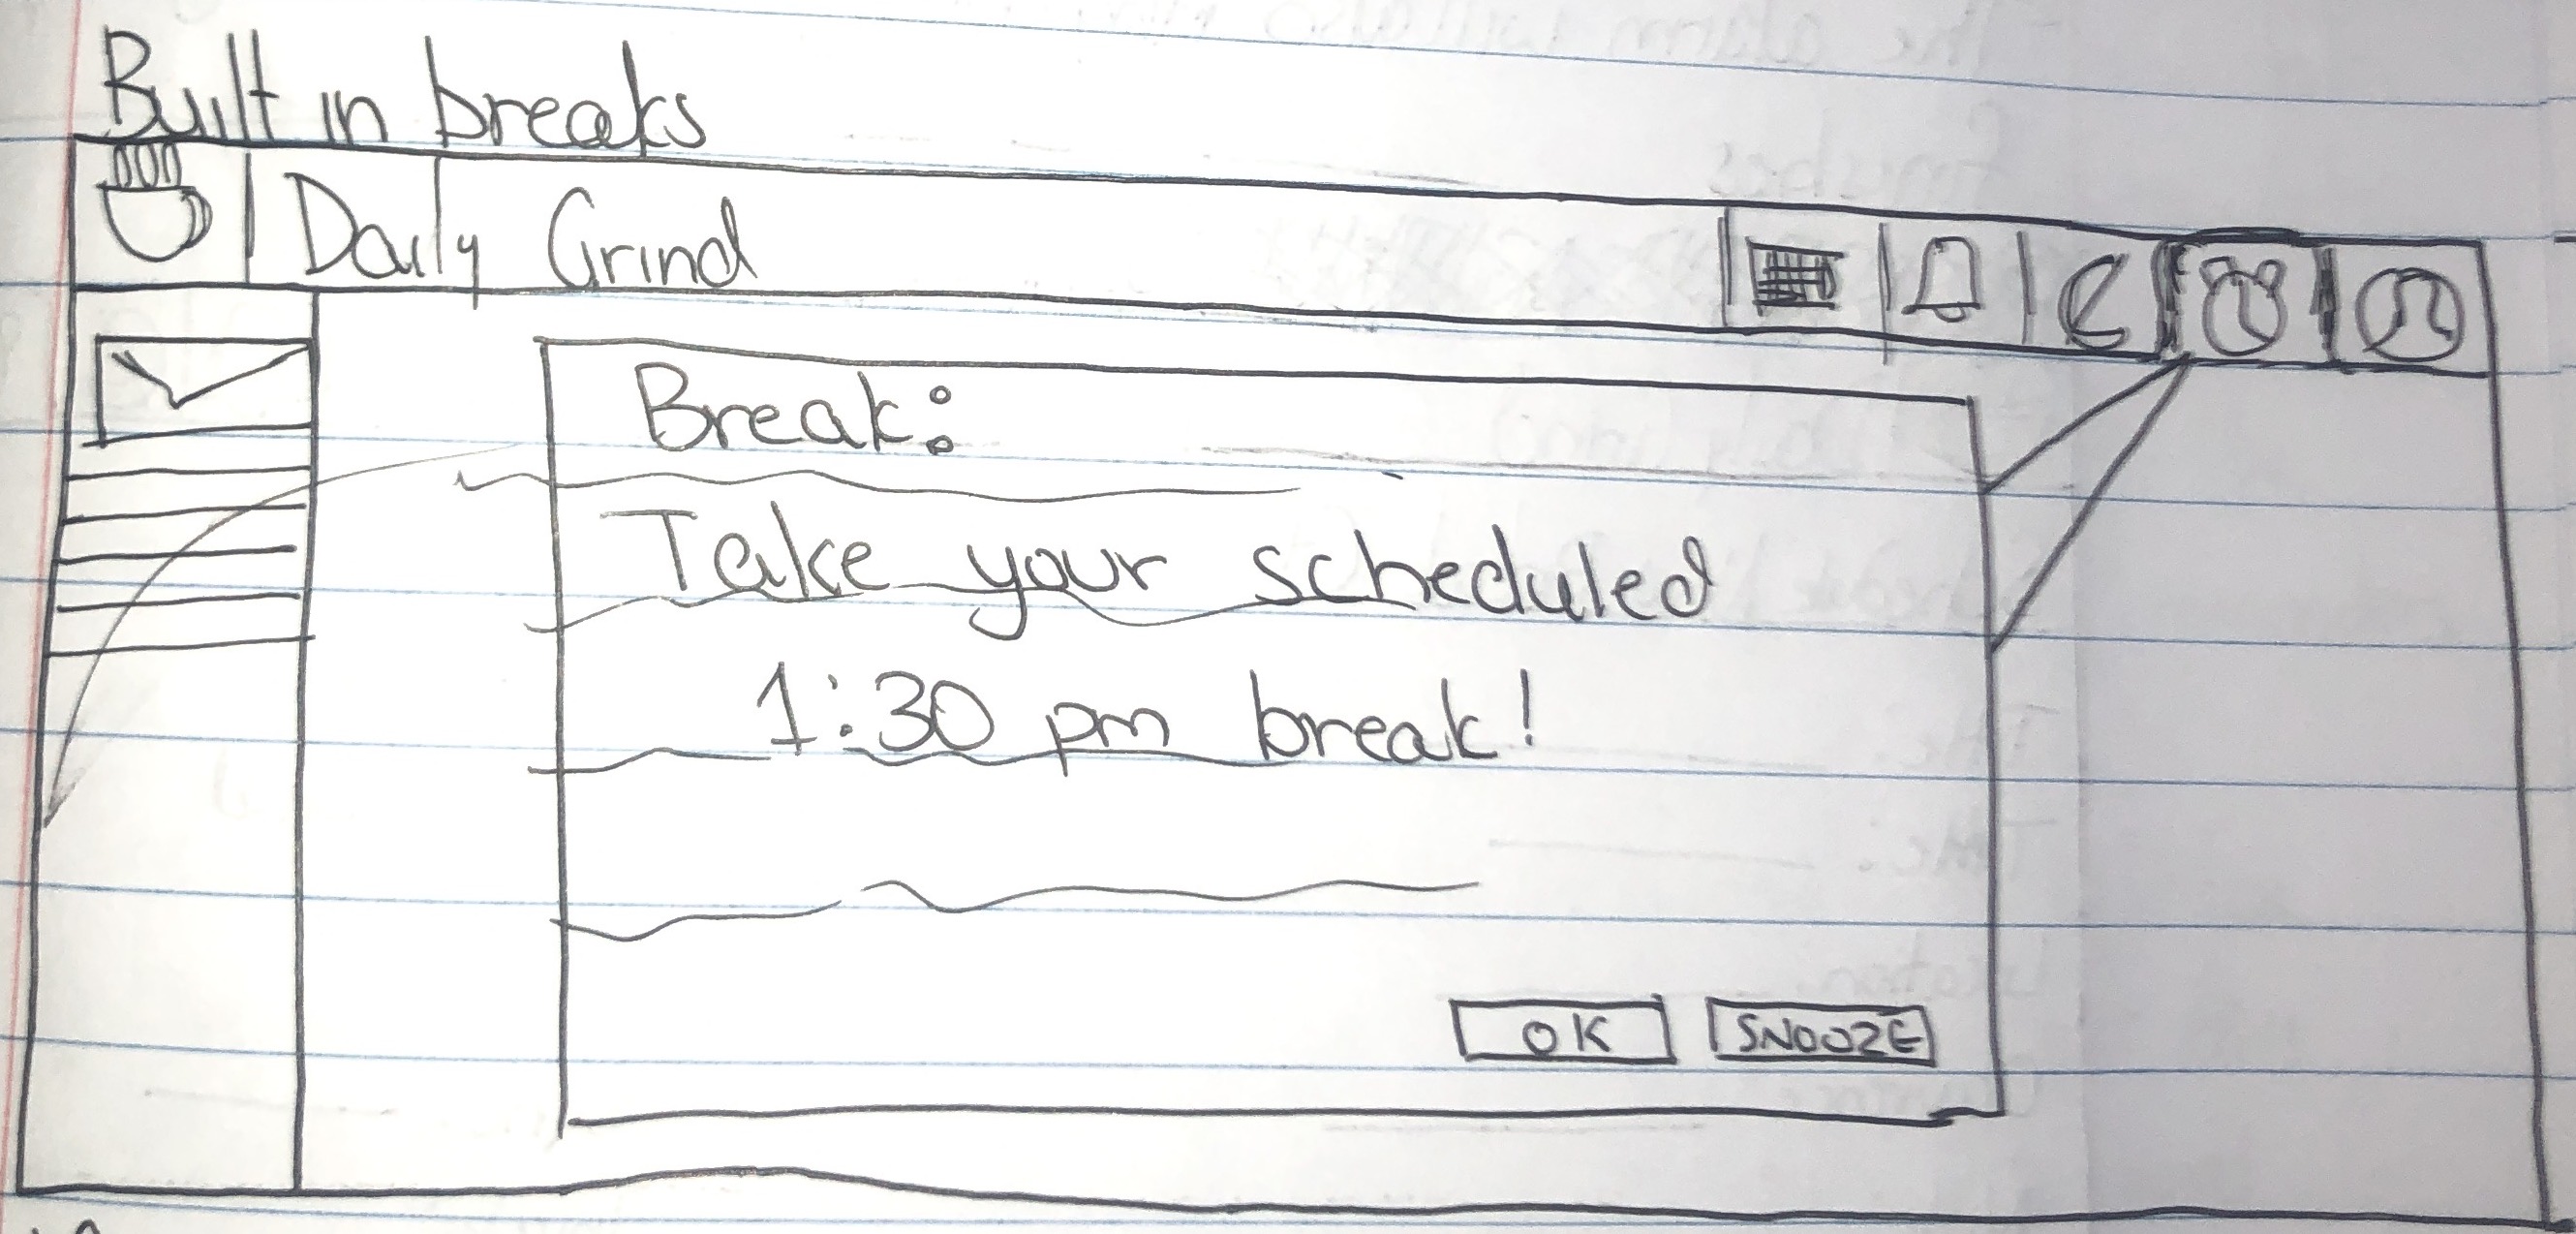 Built in breaks
Daily Grind
Break:
Take your scheduled
1:30 pm break!
OK
SNOOZE